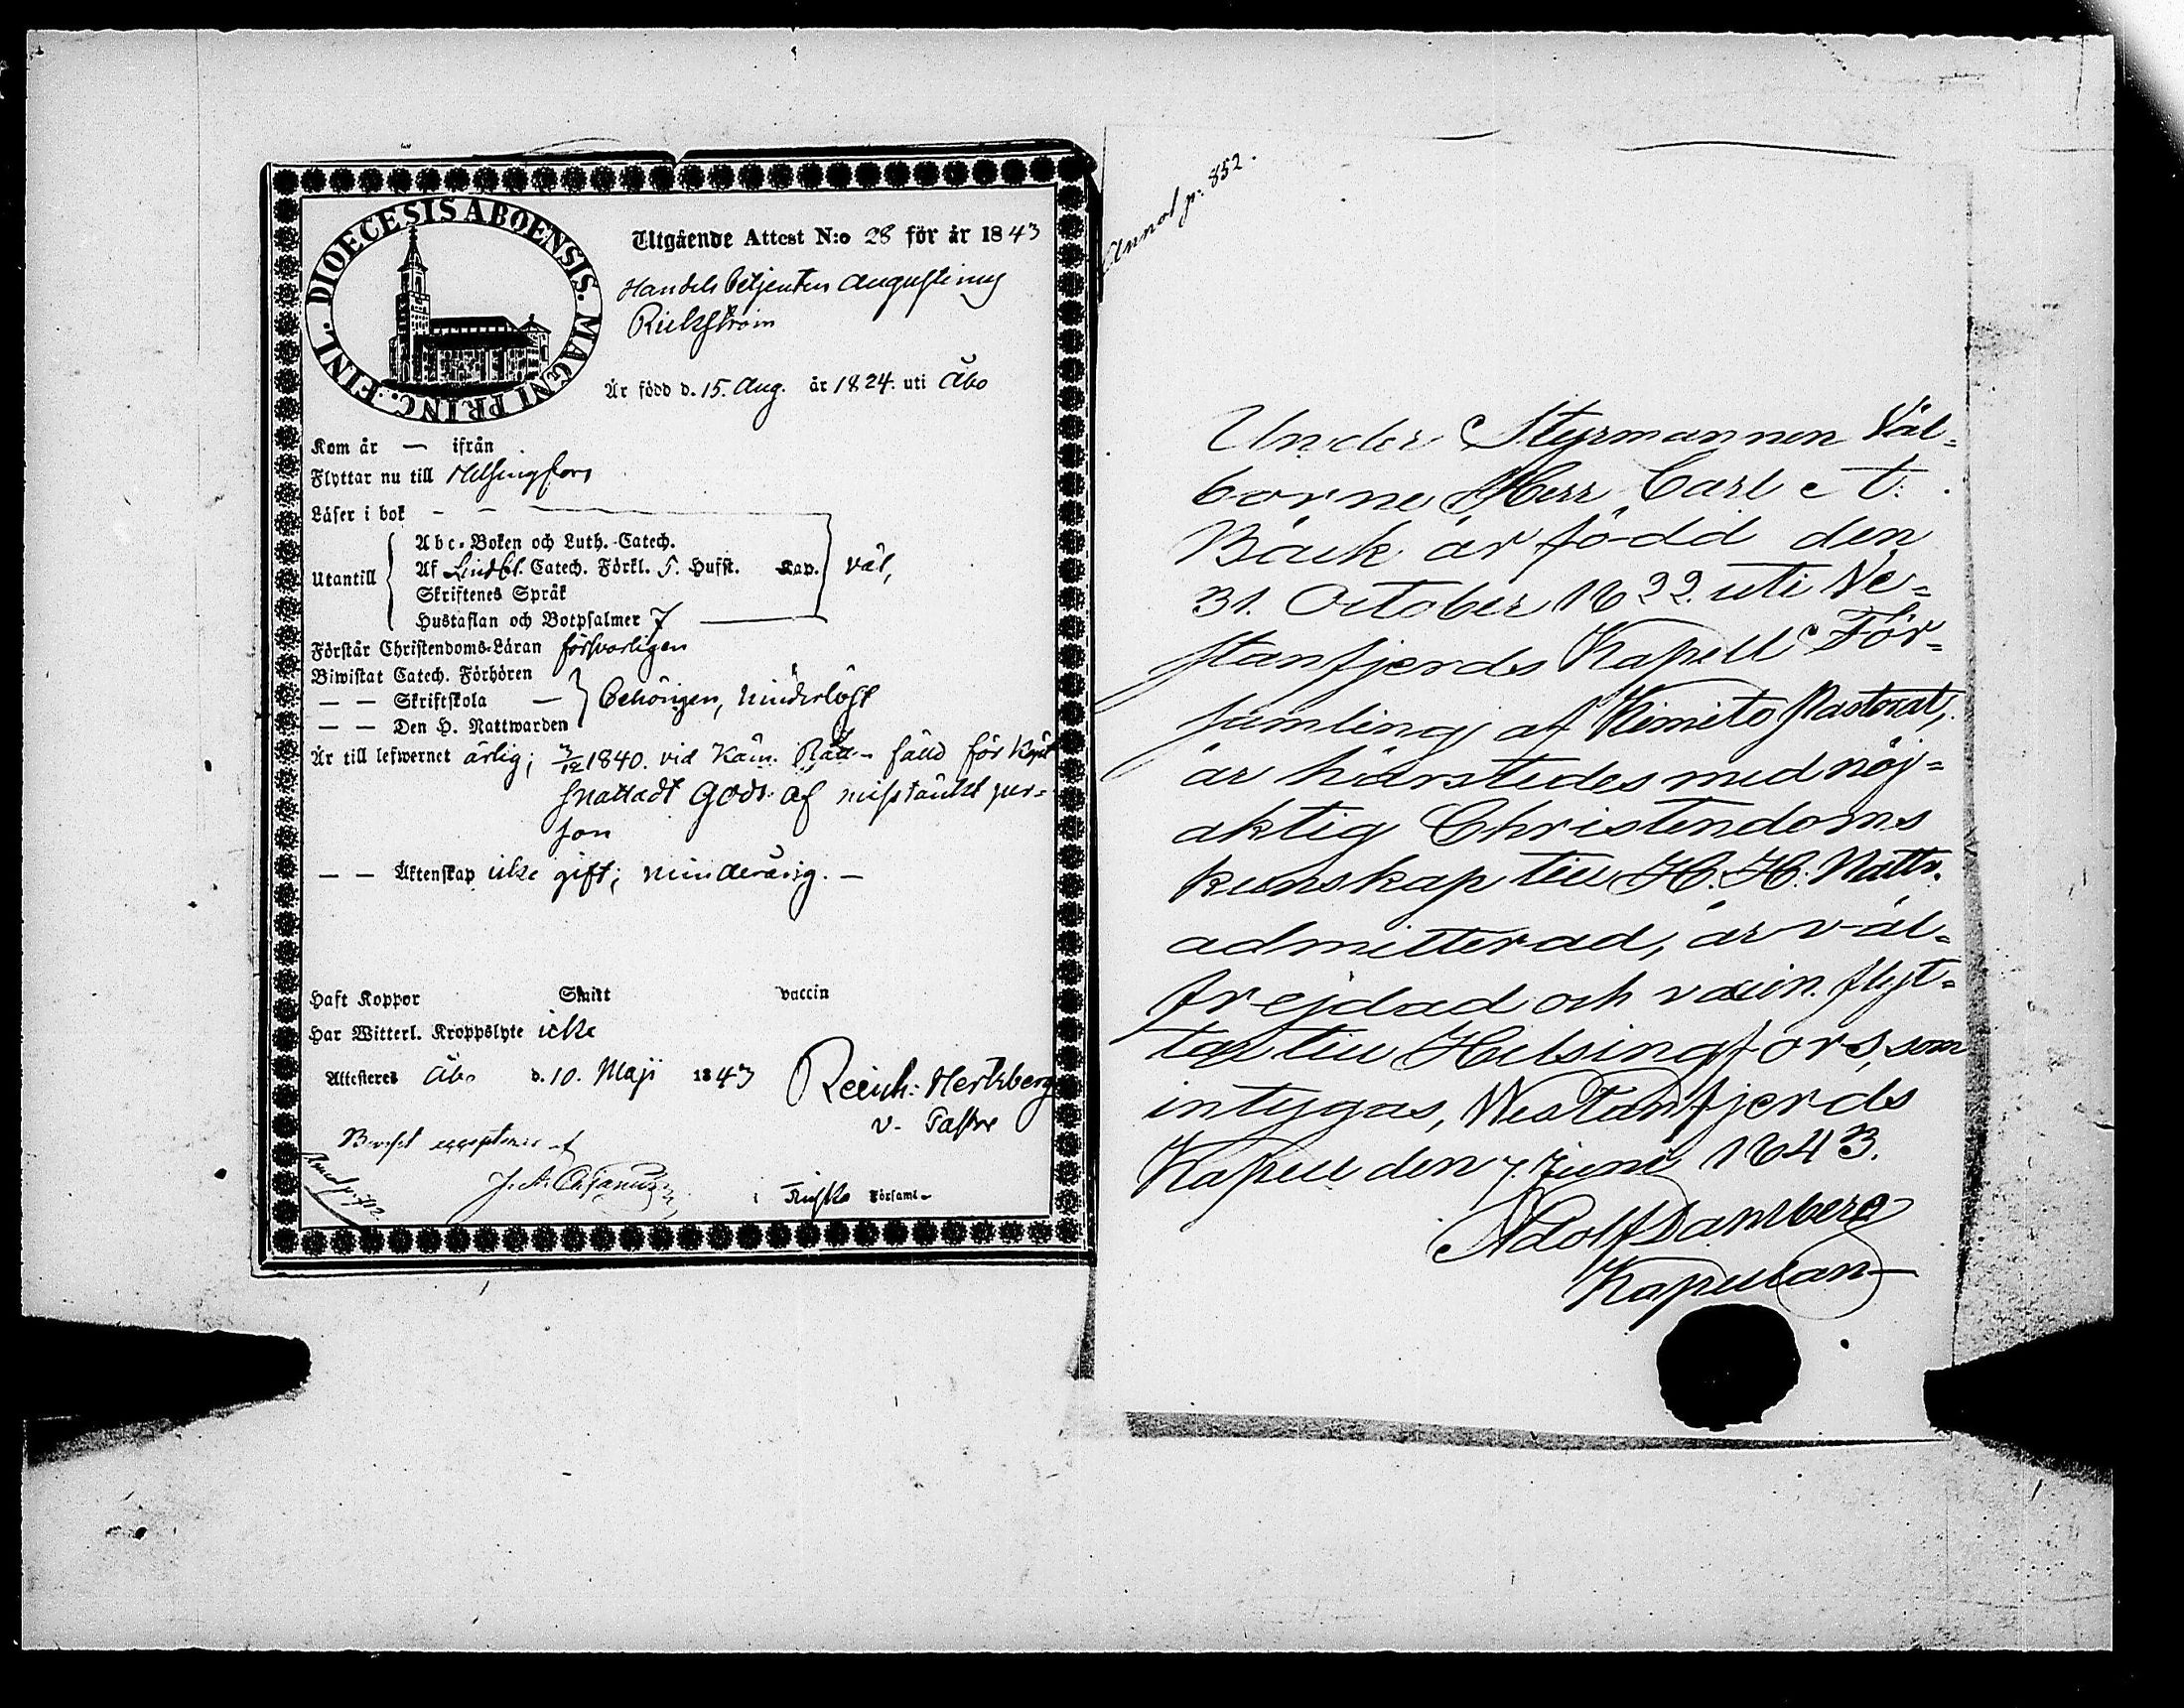 DIOECESIS ABOENSIS. MAGNI PRINC. FINL.
Utgående Attest N:o 28 för år 1843
Handels Betjenten Augustinus
Rickström
Är född d. 15. Aug. år 1824. uti Åbo
Kom år — ifrån
Flyttar nu till Helsingfors
Läser i bok - -
Utantill
Abc-Boken och Luth. Catech.
Af Lindbl. Catech. Förkl. 5. Hufst. Kap. väl,
Skriftenes Språk
Hustaflan och Botpsalmer 7
Förstår Christendoms-Läran försvarligen
Biwistat Catech. Förhören
— — Skriftskola — behörigen,
— — Den H. Nattwarden
Är till lefwernet ärlig; 3/12 1840. vid Käm. Rätt fälld för köpt
snattadt Gods af misstänkt per=
son
— — Äktenskap icke gift; minderårig. —
Haft Koppor Smitt vaccin
Har Witterl. Kroppslyte icke
Attesteres Åbo d. 10. Maji 1843 Reinh: Hertzberg
v. Pastor
Bevisl
i Finska Församl.
Annot p. 852.
Under Styrmannen Väl=
borne Herr Carl A.
Bäck är född den
31. October 1822. uti Ve=
stanfjerds Kapell För=
samling af Kimito Pastorat,
är härstedes med nöj=
aktig Christendoms
kunskap till H. H. Nattv.
admitterad, är väl=
frejdad och vaccin. flyt=
tar till Helsingfors, som
intygas, Westanfjerds
Kapell den 7. Juni 1843.
Adolf Damberg
Kapellan